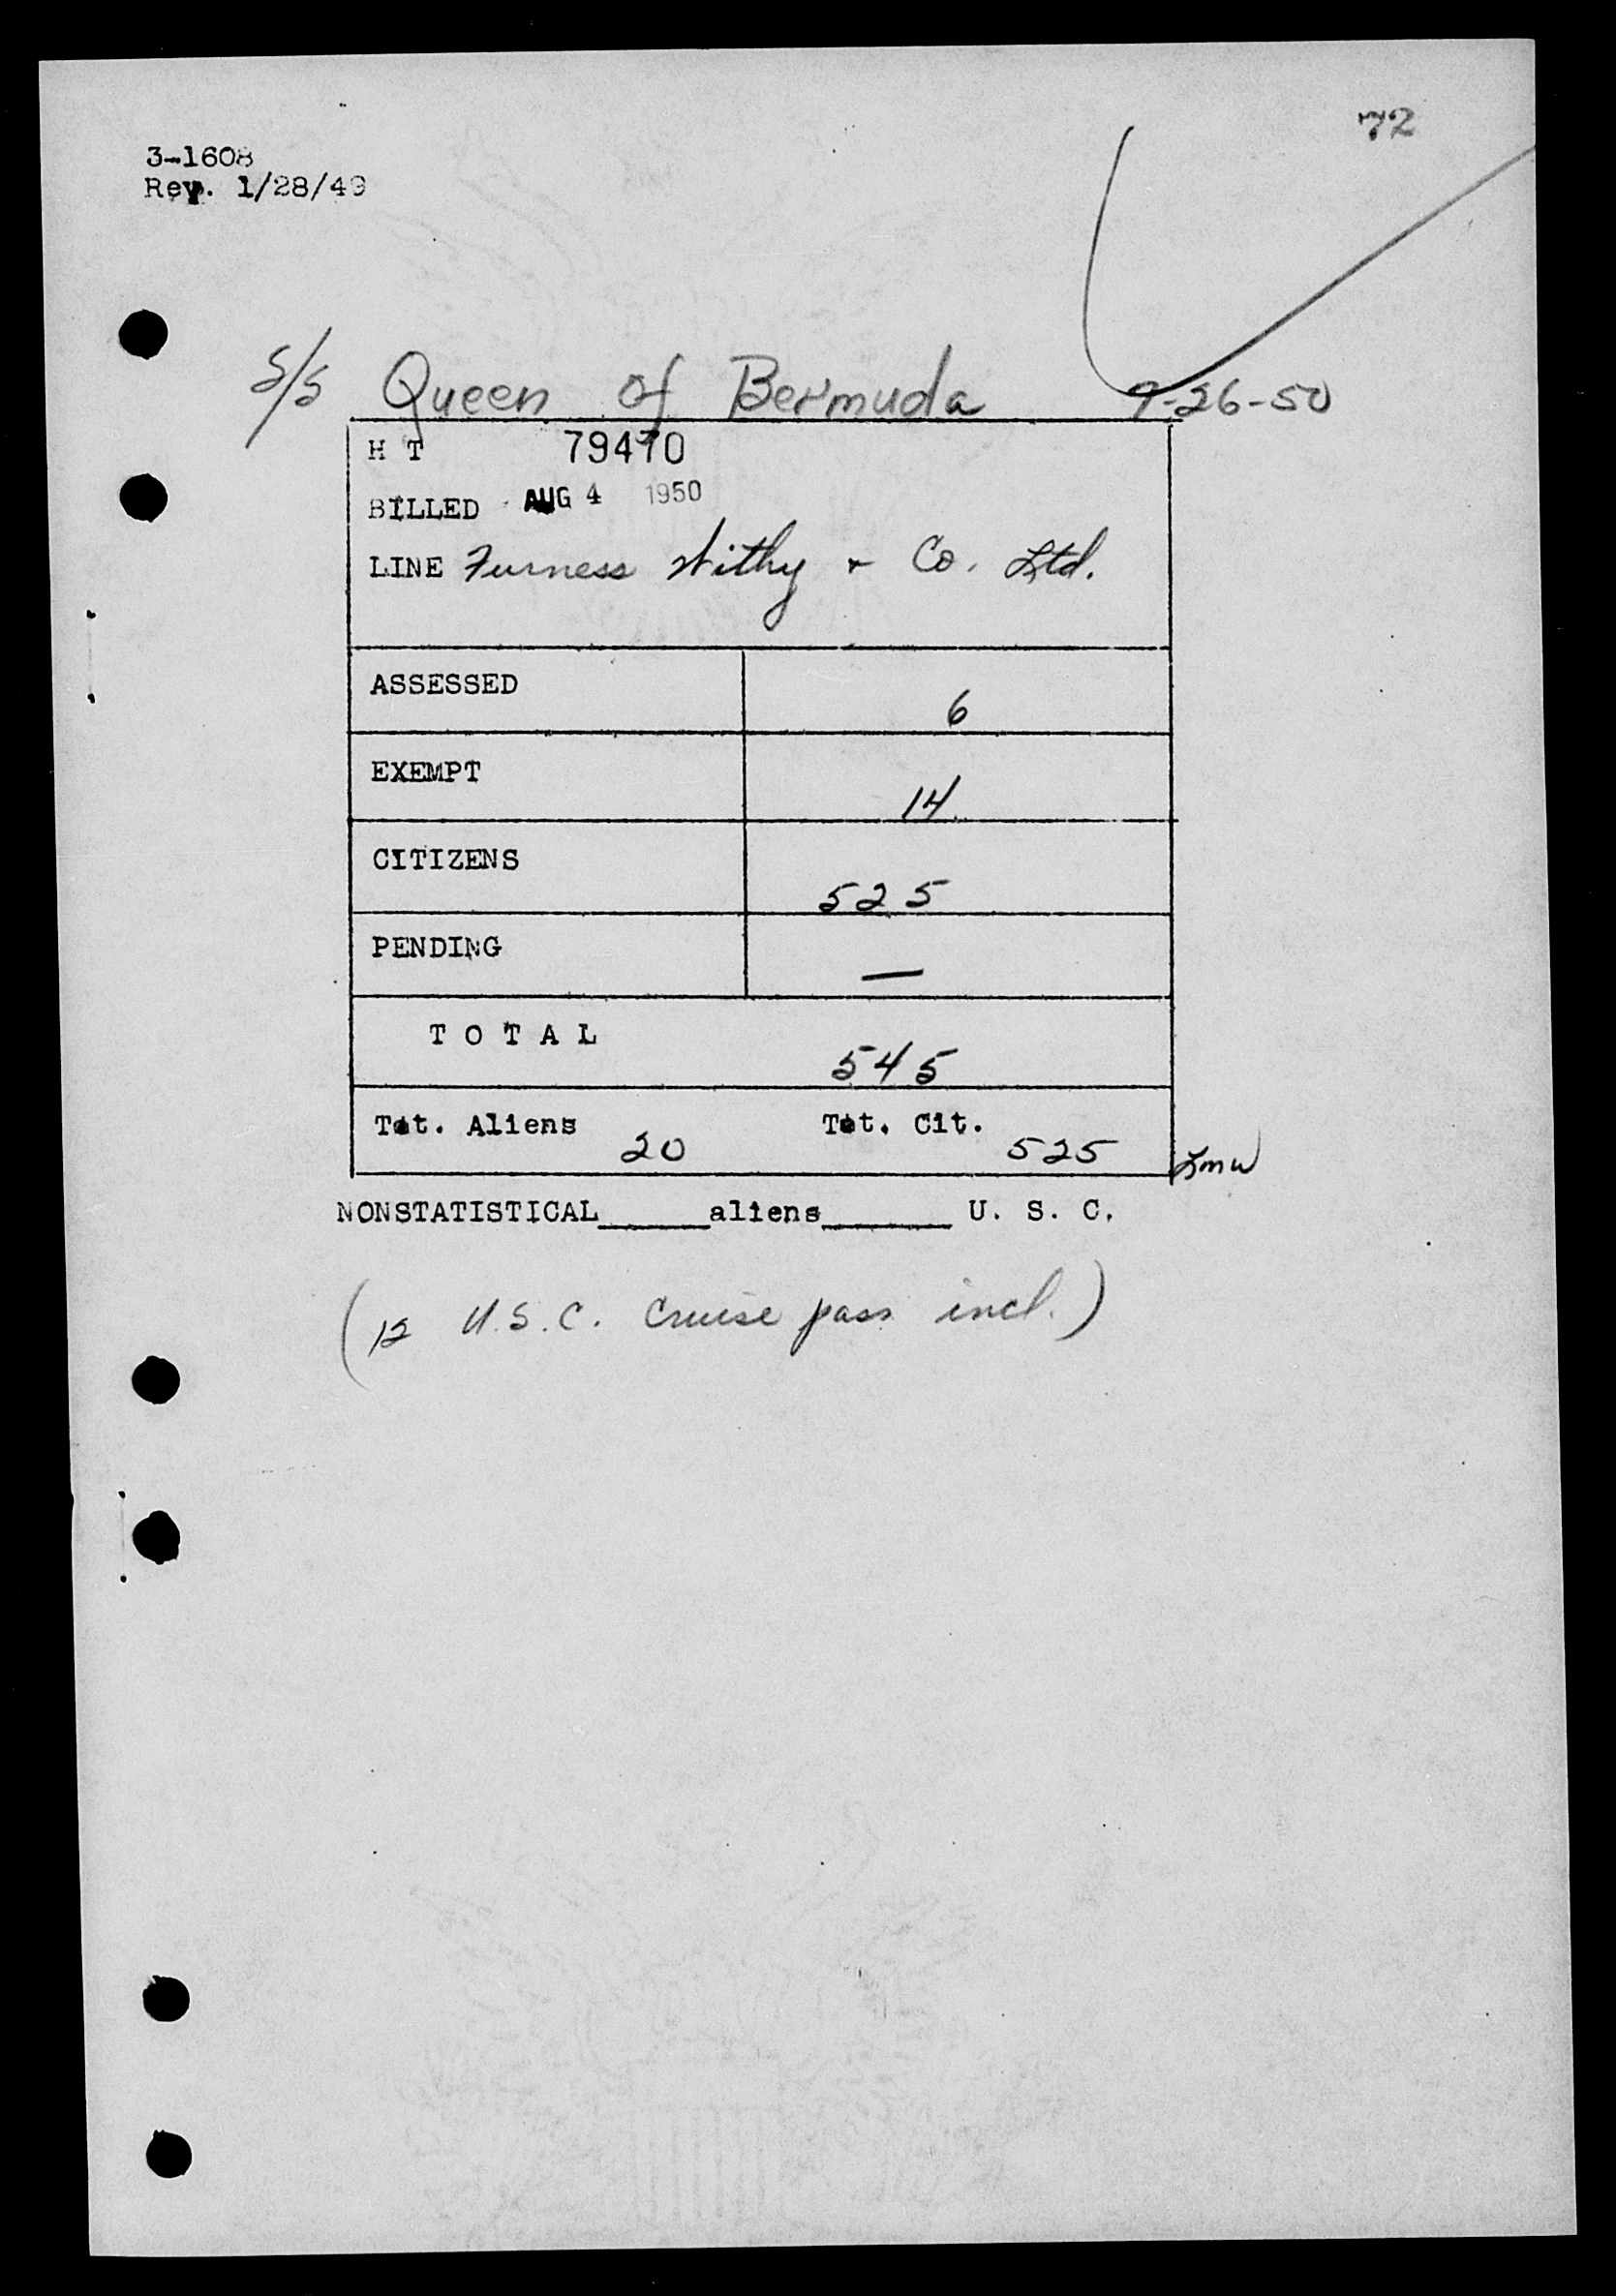 72
3-1608
Rev. 1/28/49
S/S Queen of Bermuda 9-26-50
H T 79470
BILLED AUG 4 1950
LINE Furness Withy & Co. Ltd.
ASSESSED 6
EXEMPT 14
CITIZENS 525
PENDING —
T O T A L 545
Tot. Aliens 20 Tot. Cit. 525 Lmw
NONSTATISTICAL______aliens_______ U. S. C.
(12 U.S.C. Cruise pass incl.)